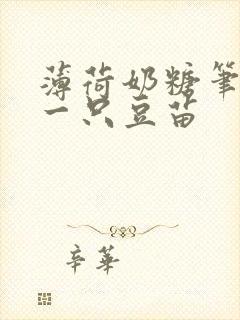 薄荷奶糖笔
一只豆苗
辛华